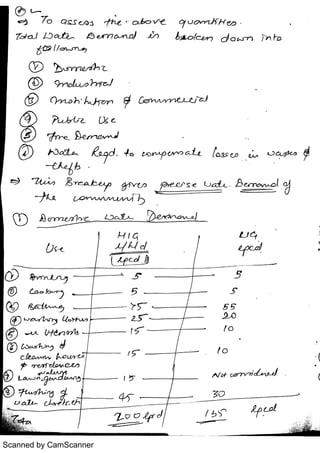 ⇒ To assess the above quantities.
Total Water Demand is broken down into
following
① Domestic
② Industrial
③ Institution & Commercial
④ Public Use
⑤ Fire Demand
⑥ Water Reqd. to compensate losses in wastes &
thefts.
⇒ This Breakup gives precise Water Demand of
the community
① Domestic Water Demand
HIG LIG
Use l/h/d lpcd
(lpcd)
① Drinking 5 5
② Cooking 5 5
③ Bathing 75 55
④ washing clothes 25 20
⑤ utensils 15 10
⑥ Washing &
cleaning houses 15 10
& residences
⑦ Lawn, gardening 15 Not considered
⑧ Flushing of 45 30
water closets etc
Total 200 lpcd 135 lpcd
Scanned by CamScanner